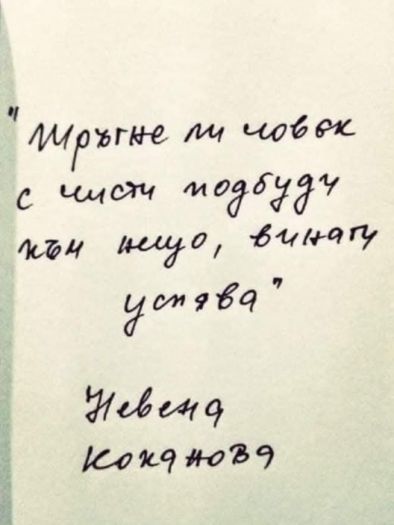 "Тръгне ли човек
с чисти подбуди
към нещо, винаги
успява"
Невена
Коканова